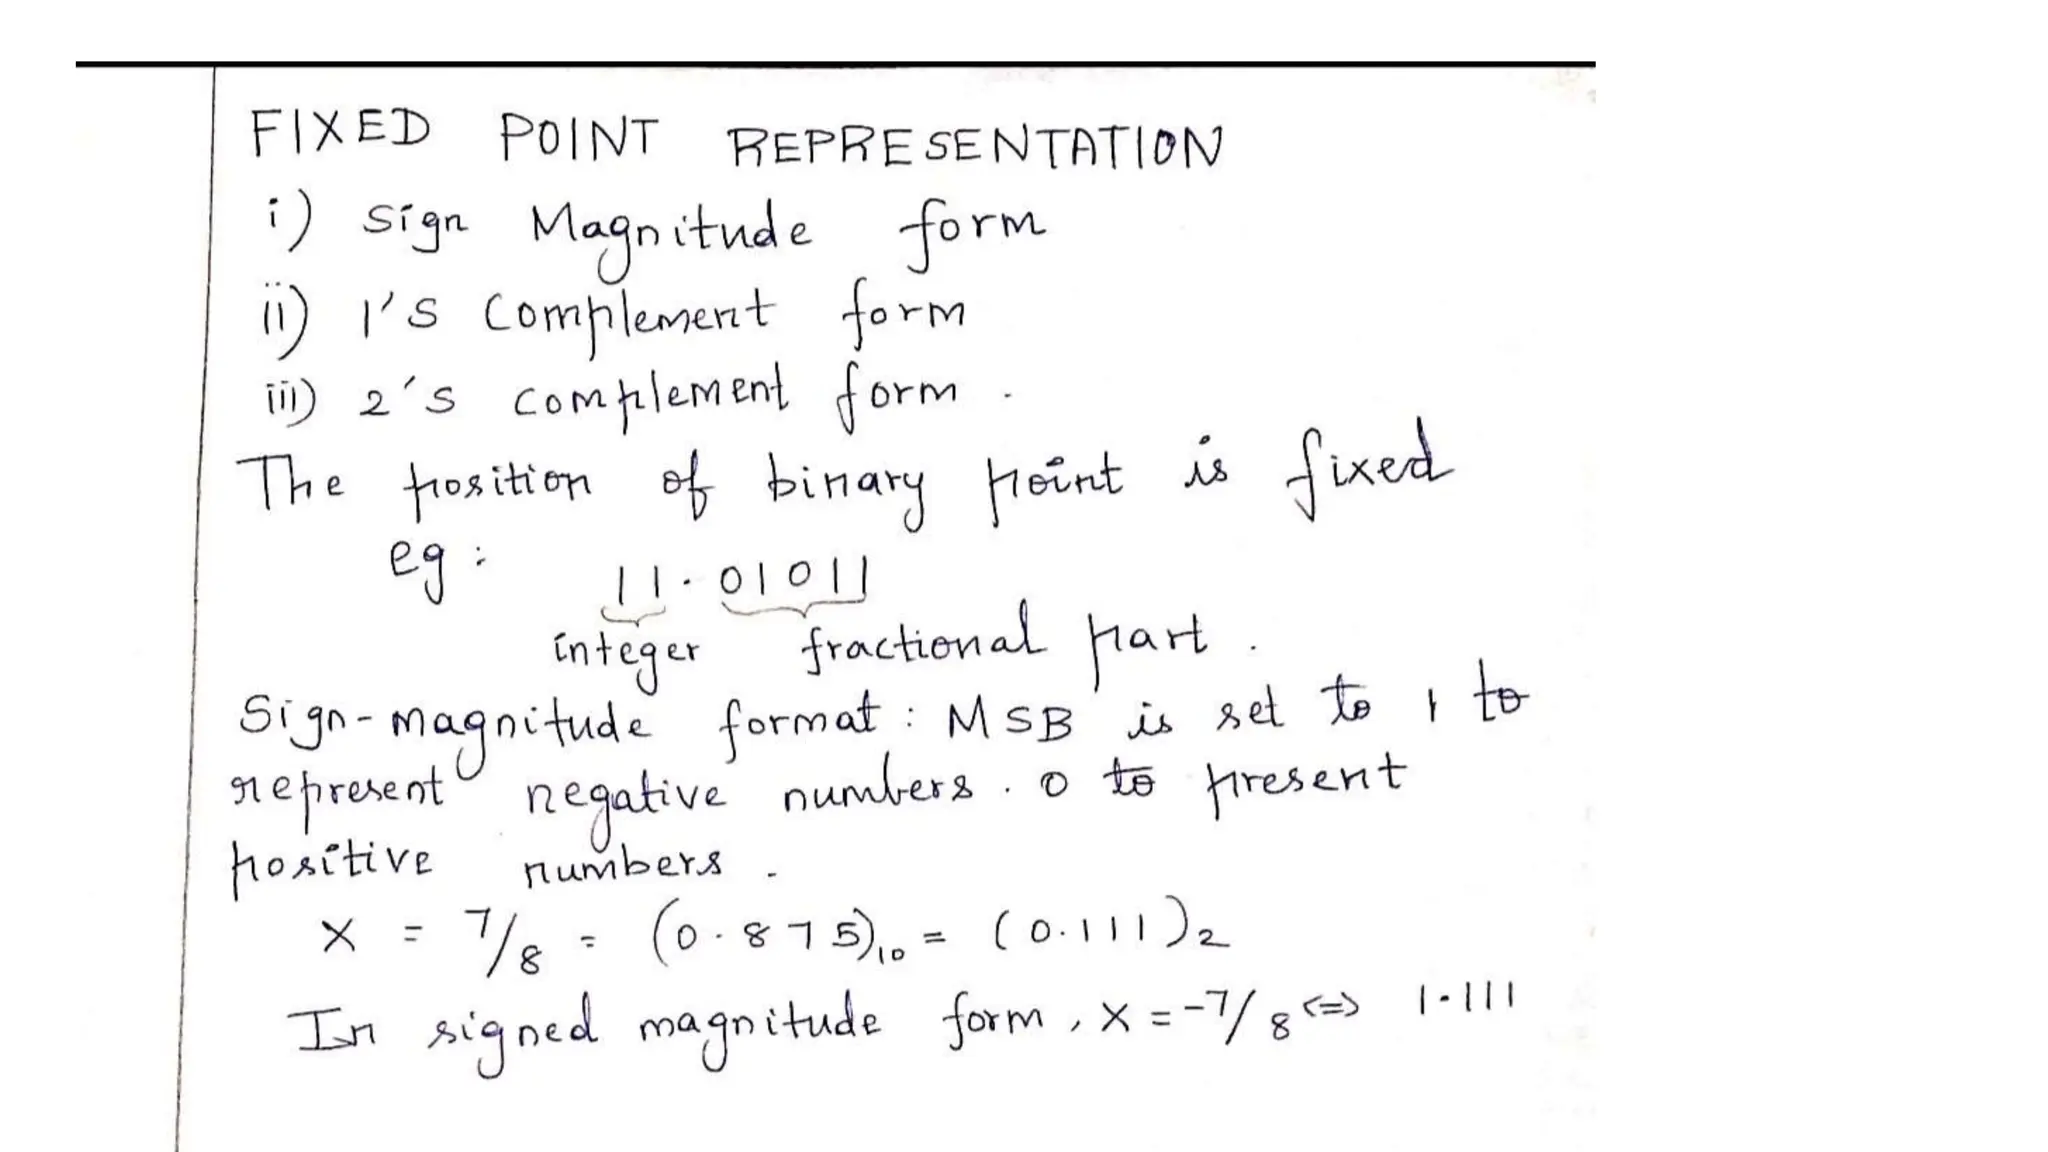 FIXED POINT REPRESENTATION
i) Sign Magnitude form
ii) 1's Complement form
iii) 2's complement form .
The position of binary point is fixed
eg : 11.01011
integer fractional part .
Sign-magnitude format : MSB is set to 1 to
represent negative numbers . 0 to present
positive numbers .
X = 7/8 = (0.875)₁₀ = (0.111)₂
In signed magnitude form , X = -7/8 <=> 1.111